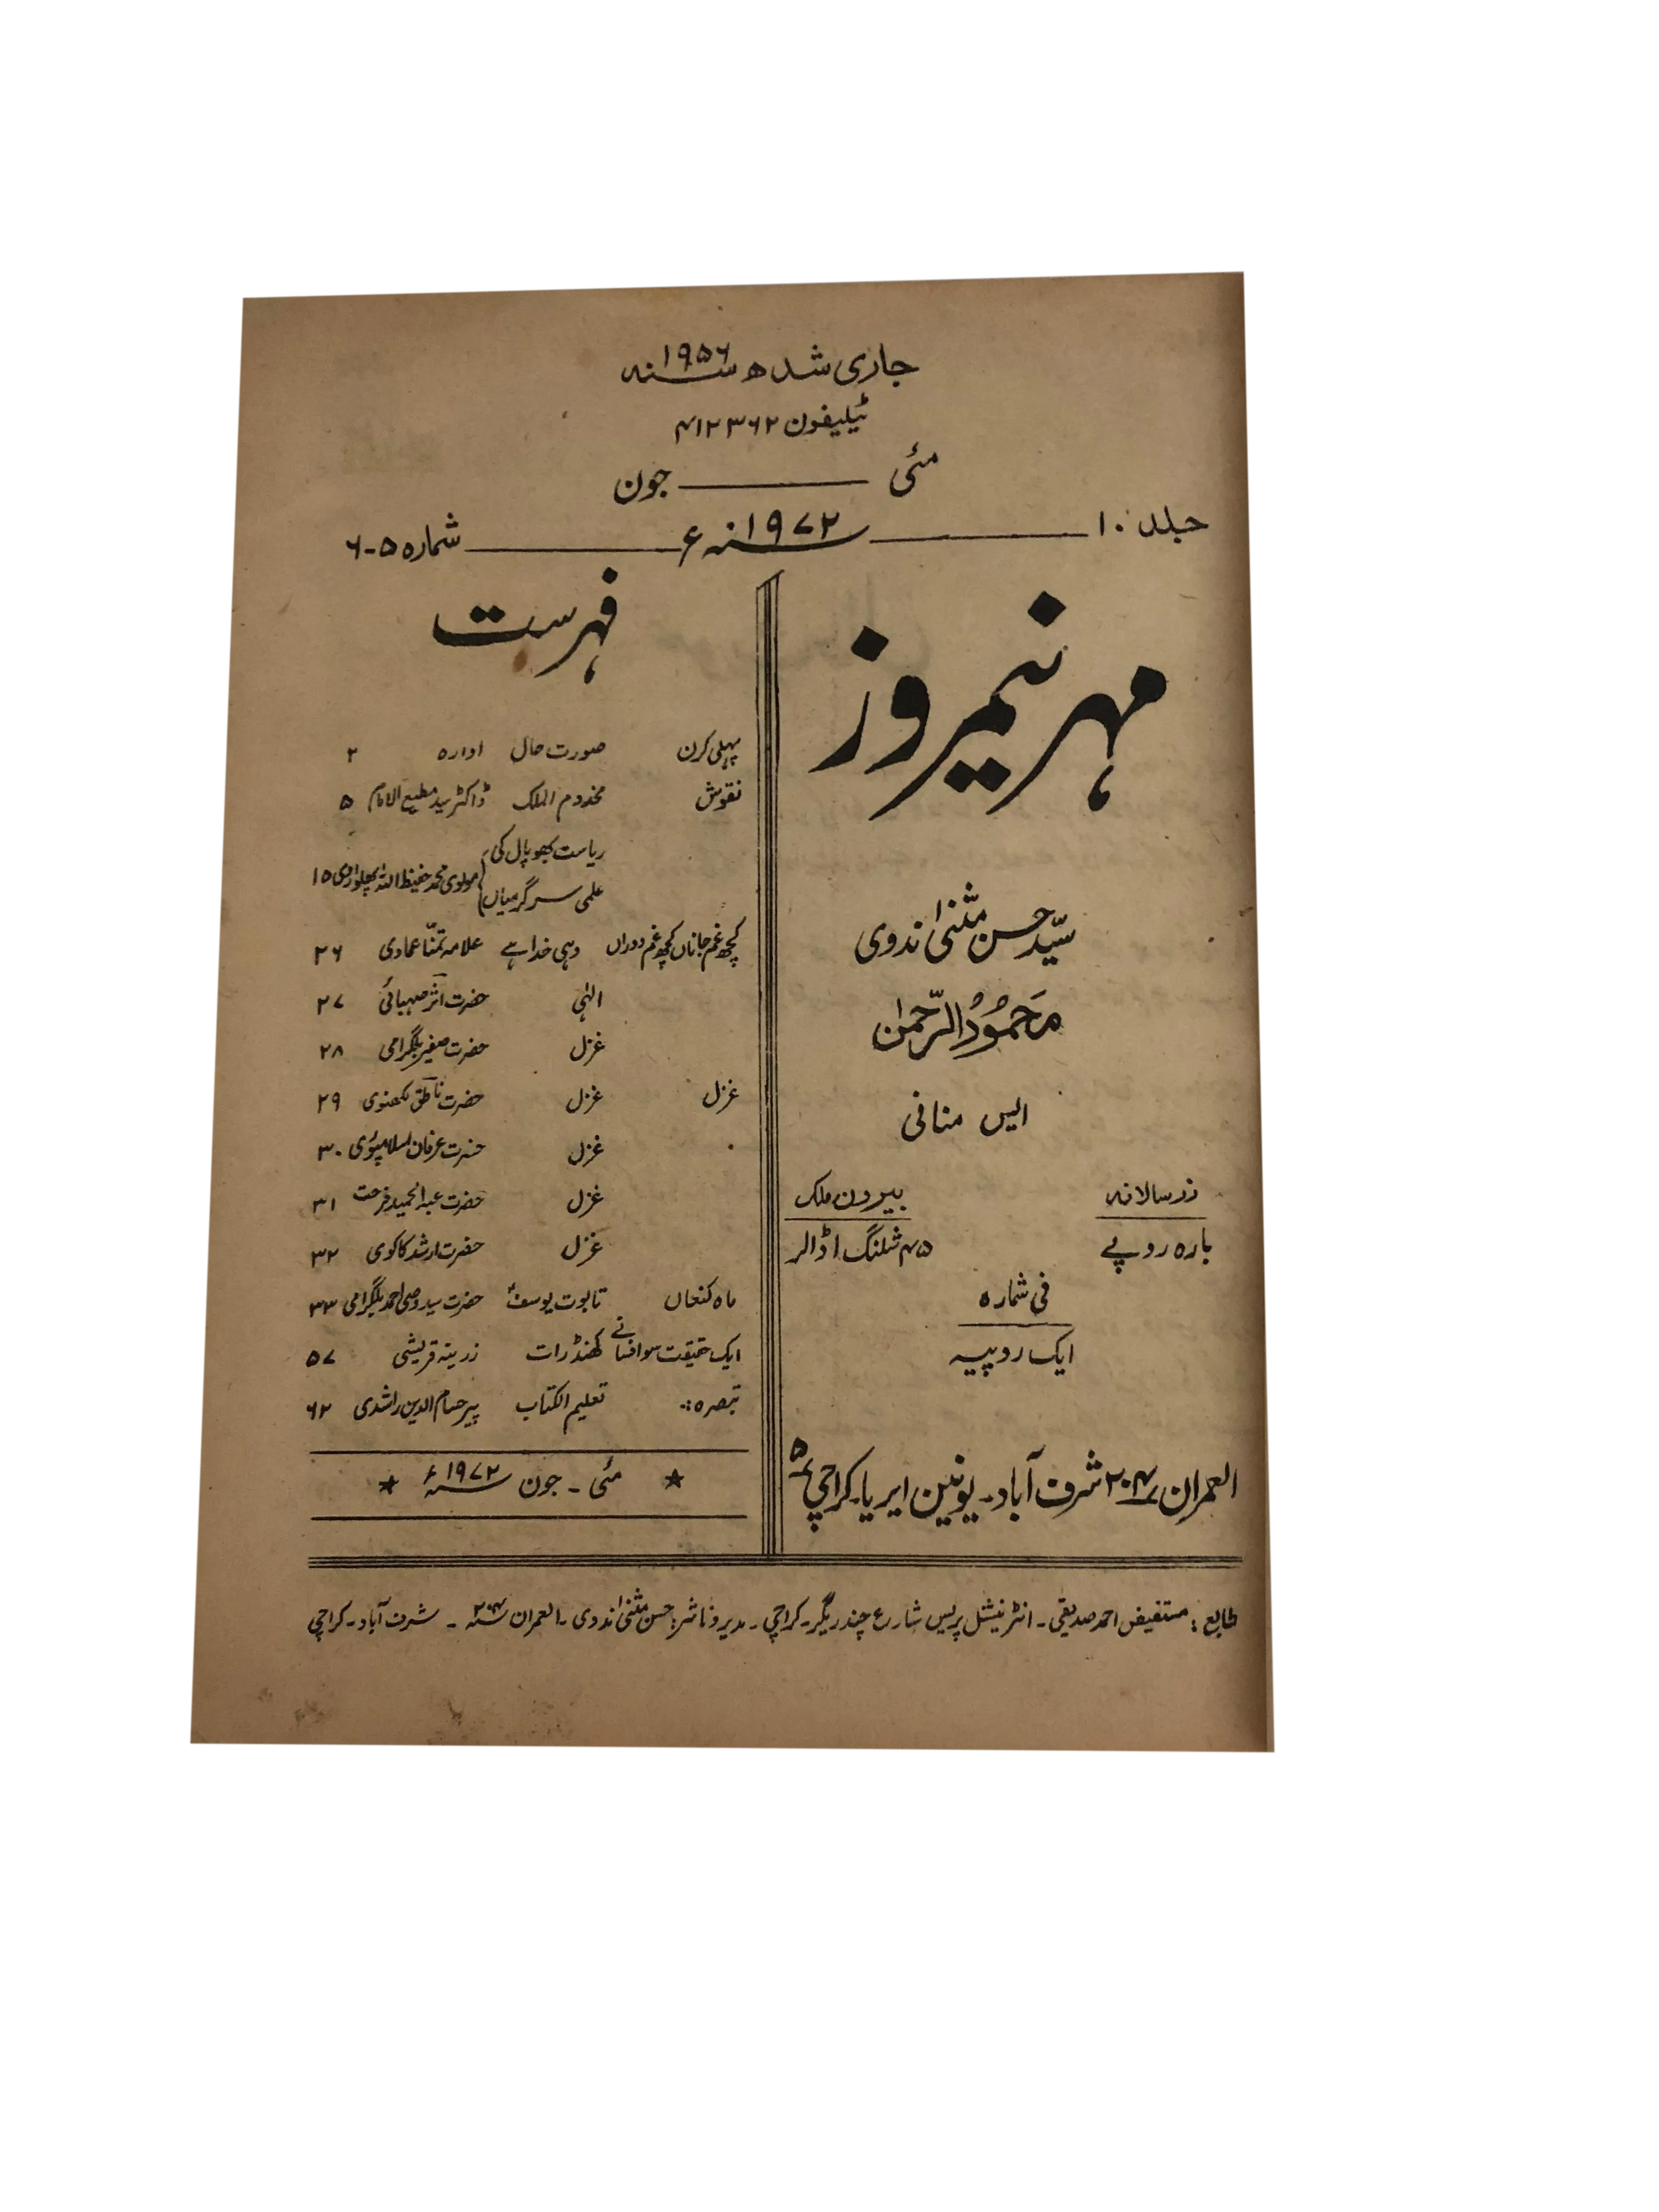 جاری شدہ سنہ ۱۹۵۶
ٹیلیفون ۴۱۲۳۶۲
مئی ــــــ جون
جلد ۱۰ ــــــ سنہ ۱۹۷۲ء ــــــ شمارہ ۵-۶
مہر نیمروز
سیّد حسن مثنیٰ ندوی
مَحمُودُ الرّحمٰن
ایس منافی
زر سالانہ
بارہ روپے
بیرون ملک
۴۵ شلنگ ۱ ڈالر
فی شمارہ
ایک روپیہ
العمران ۲۰۴/۷ شرف آباد۔ یونین ایریا۔ کراچی ۵
فہرست
پہلی کرن صورت حال ادارہ ۲
نقوش مخدوم الملک ڈاکٹر سید مطیع الامام ۵
ریاست بھوپال کی
علمی سرگرمیاں مولوی محمد حفیظ اللہ پھلواروی ۱۵
کچھ غم جاناں کچھ غم دوراں وہی خدا ہے علامہ تمنّا عمادی ۲۶
الٰہی حضرت اثر صہبائی ۲۷
غزل حضرت صفیر بلگرامی ۲۸
غزل غزل حضرت ناطق لکھنوی ۲۹
غزل حضرت عرفان اسلامپوری ۳۰
غزل حضرت عبدالحمید فرحت ۳۱
غزل حضرت ارشد کاکوی ۳۲
ماہ کنعاں تابوت یوسفؑ حضرت سید وصی احمد بلگرامی ۳۳
ایک حقیقت سو افسانے کھنڈرات زرینہ قریشی ۵۷
تبصرہ:۔ تعلیم الکتاب پیر حسام الدین راشدی ۶۲
★ مئی ۔ جون سنہ ۱۹۷۲ء ★
طابع: مستفیض احمد صدیقی۔ انٹرنیشنل پریس شارع چندریگر۔ کراچی۔ مدیر و ناشر: حسن مثنیٰ ندوی۔ العمران ۲۰۴/۷ ۔ شرف آباد۔ کراچی